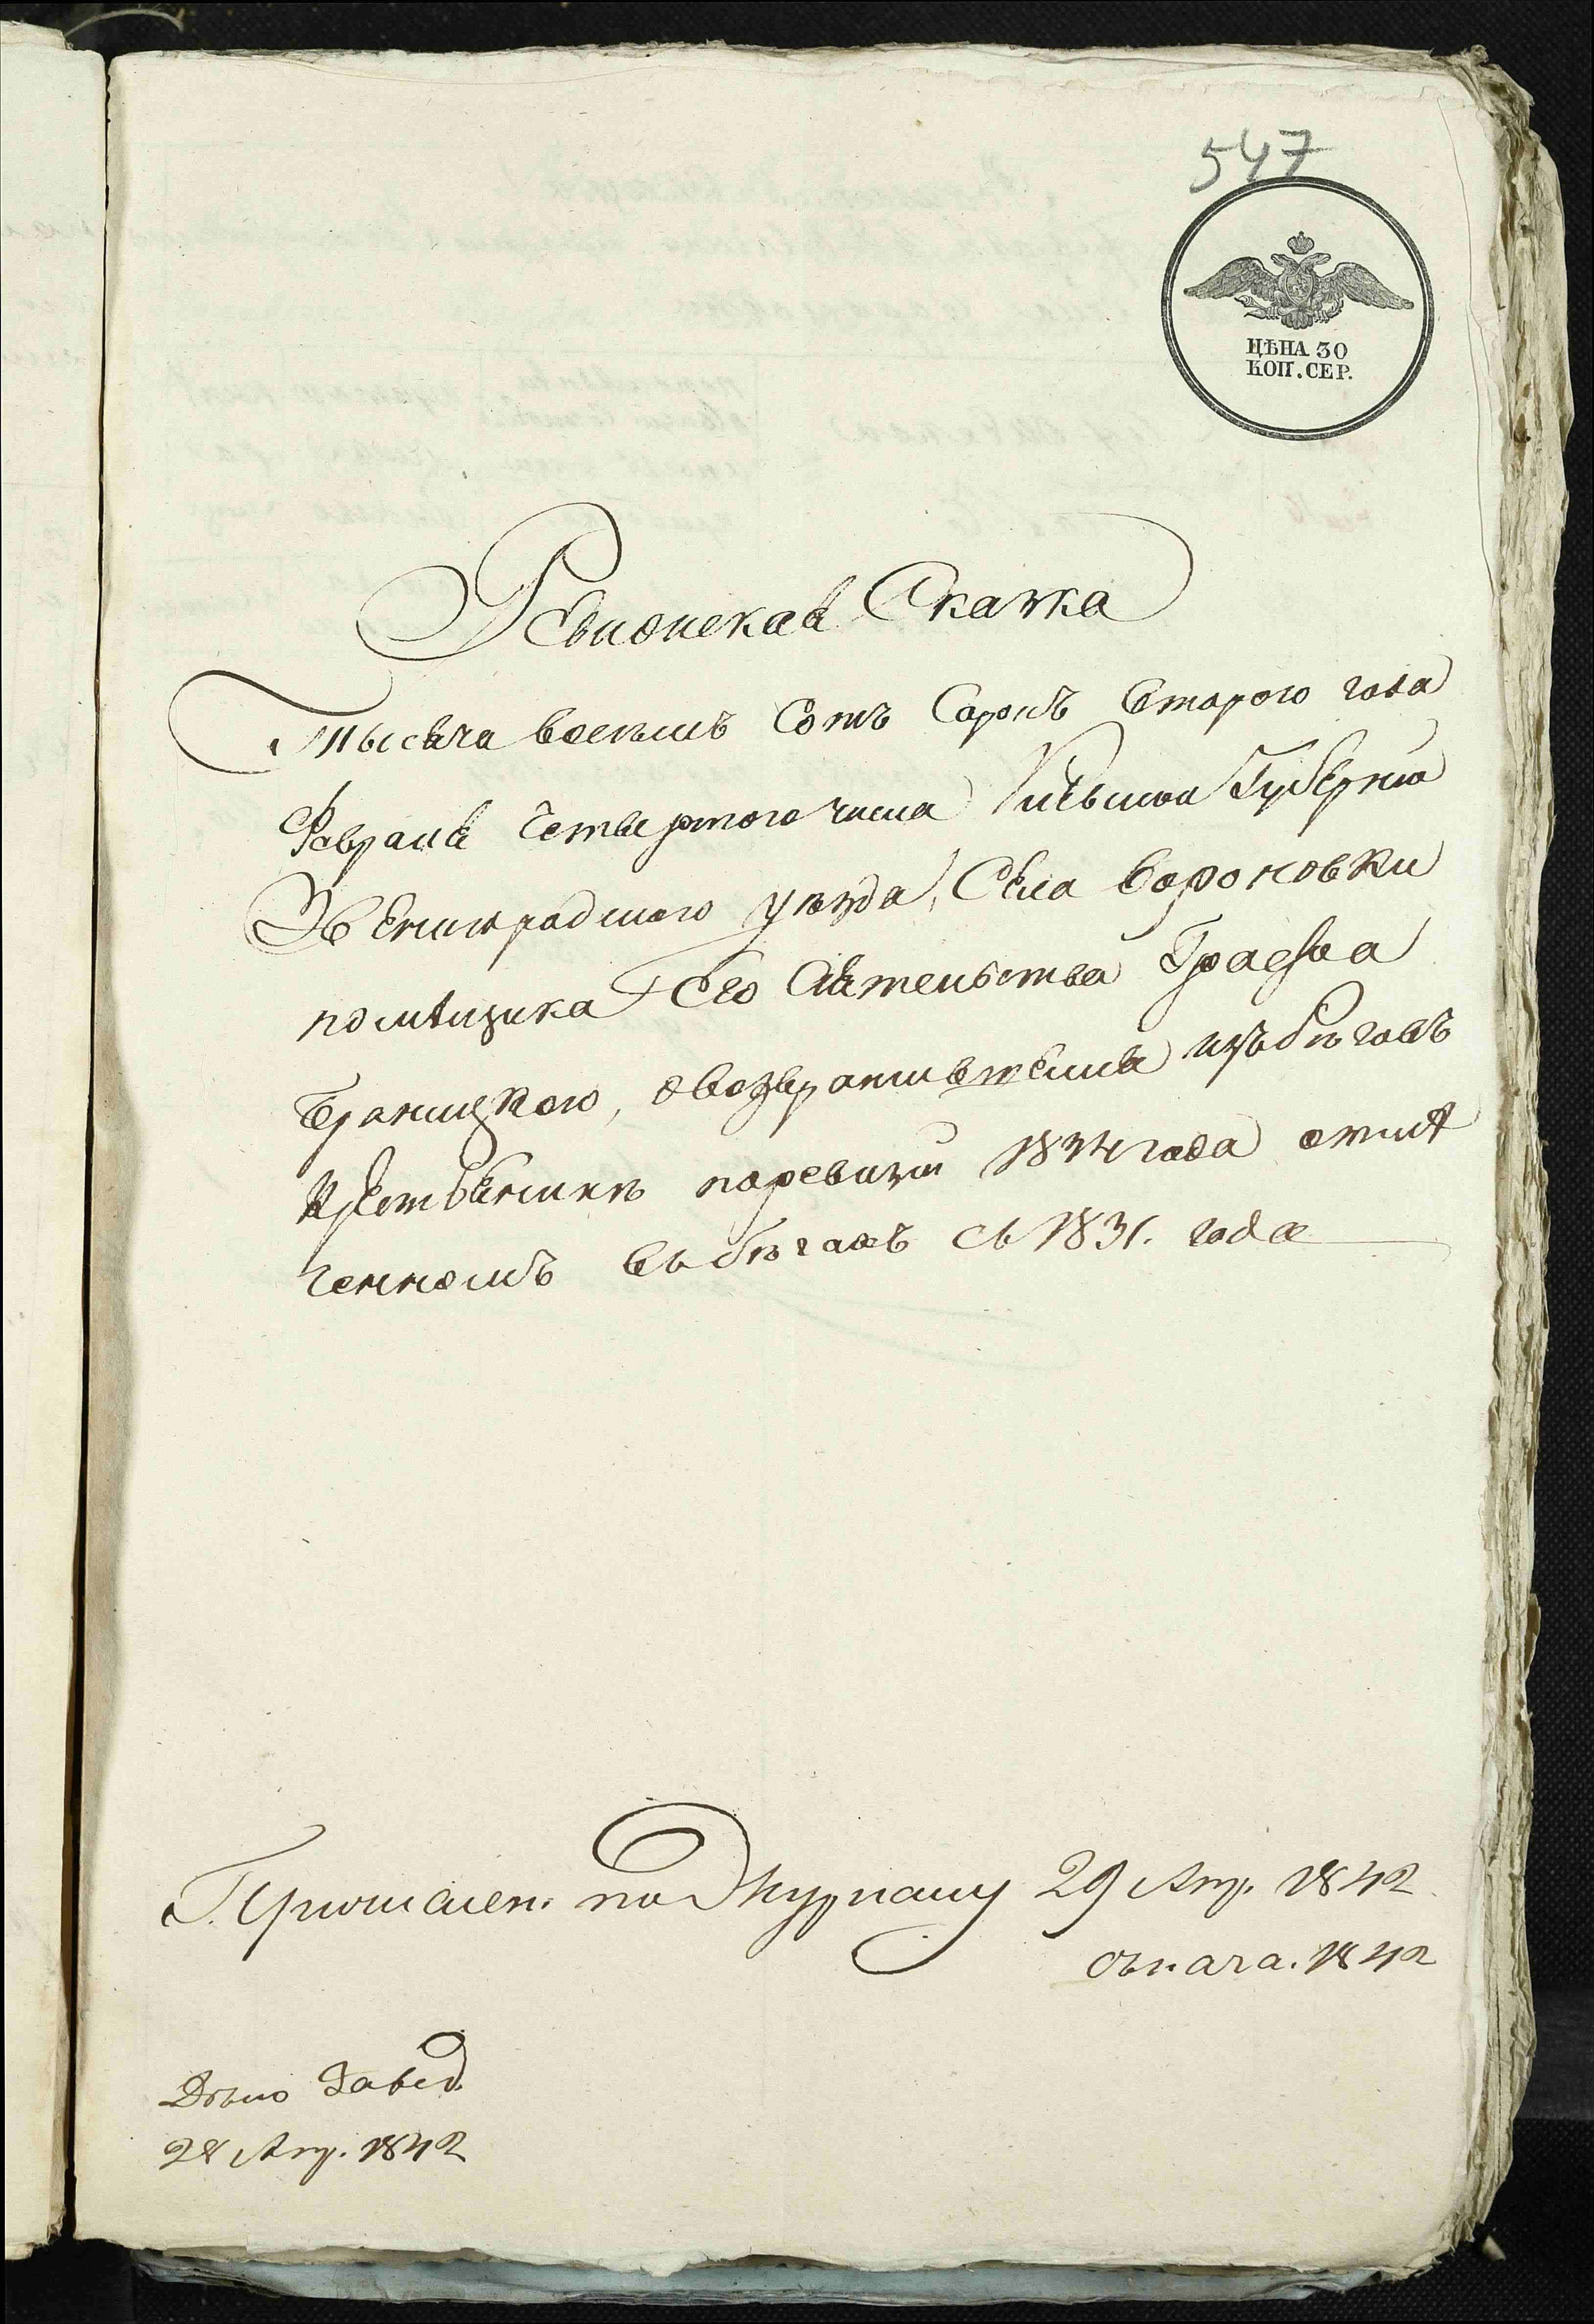 547
ЦѢНА 30
КОП. СЕР.
Ревизская Сказка
Тысяча восемь Сотъ Сорокъ второго года
Февраля Четвертого числа Кіевской Губерніи
Звенигродского уѣзда, Села Вороновки
помѣщика Его Сіятельства Графа
Браницкого, овозвратившемся изъбѣговъ
крестьянинѣ поревизіи 1834 года отмѣ
ченномъ въбѣгахъ съ 1831. года
по Журналу 29 Апр. 1842
1842
Дѣло Завед.
28 Апр. 1842